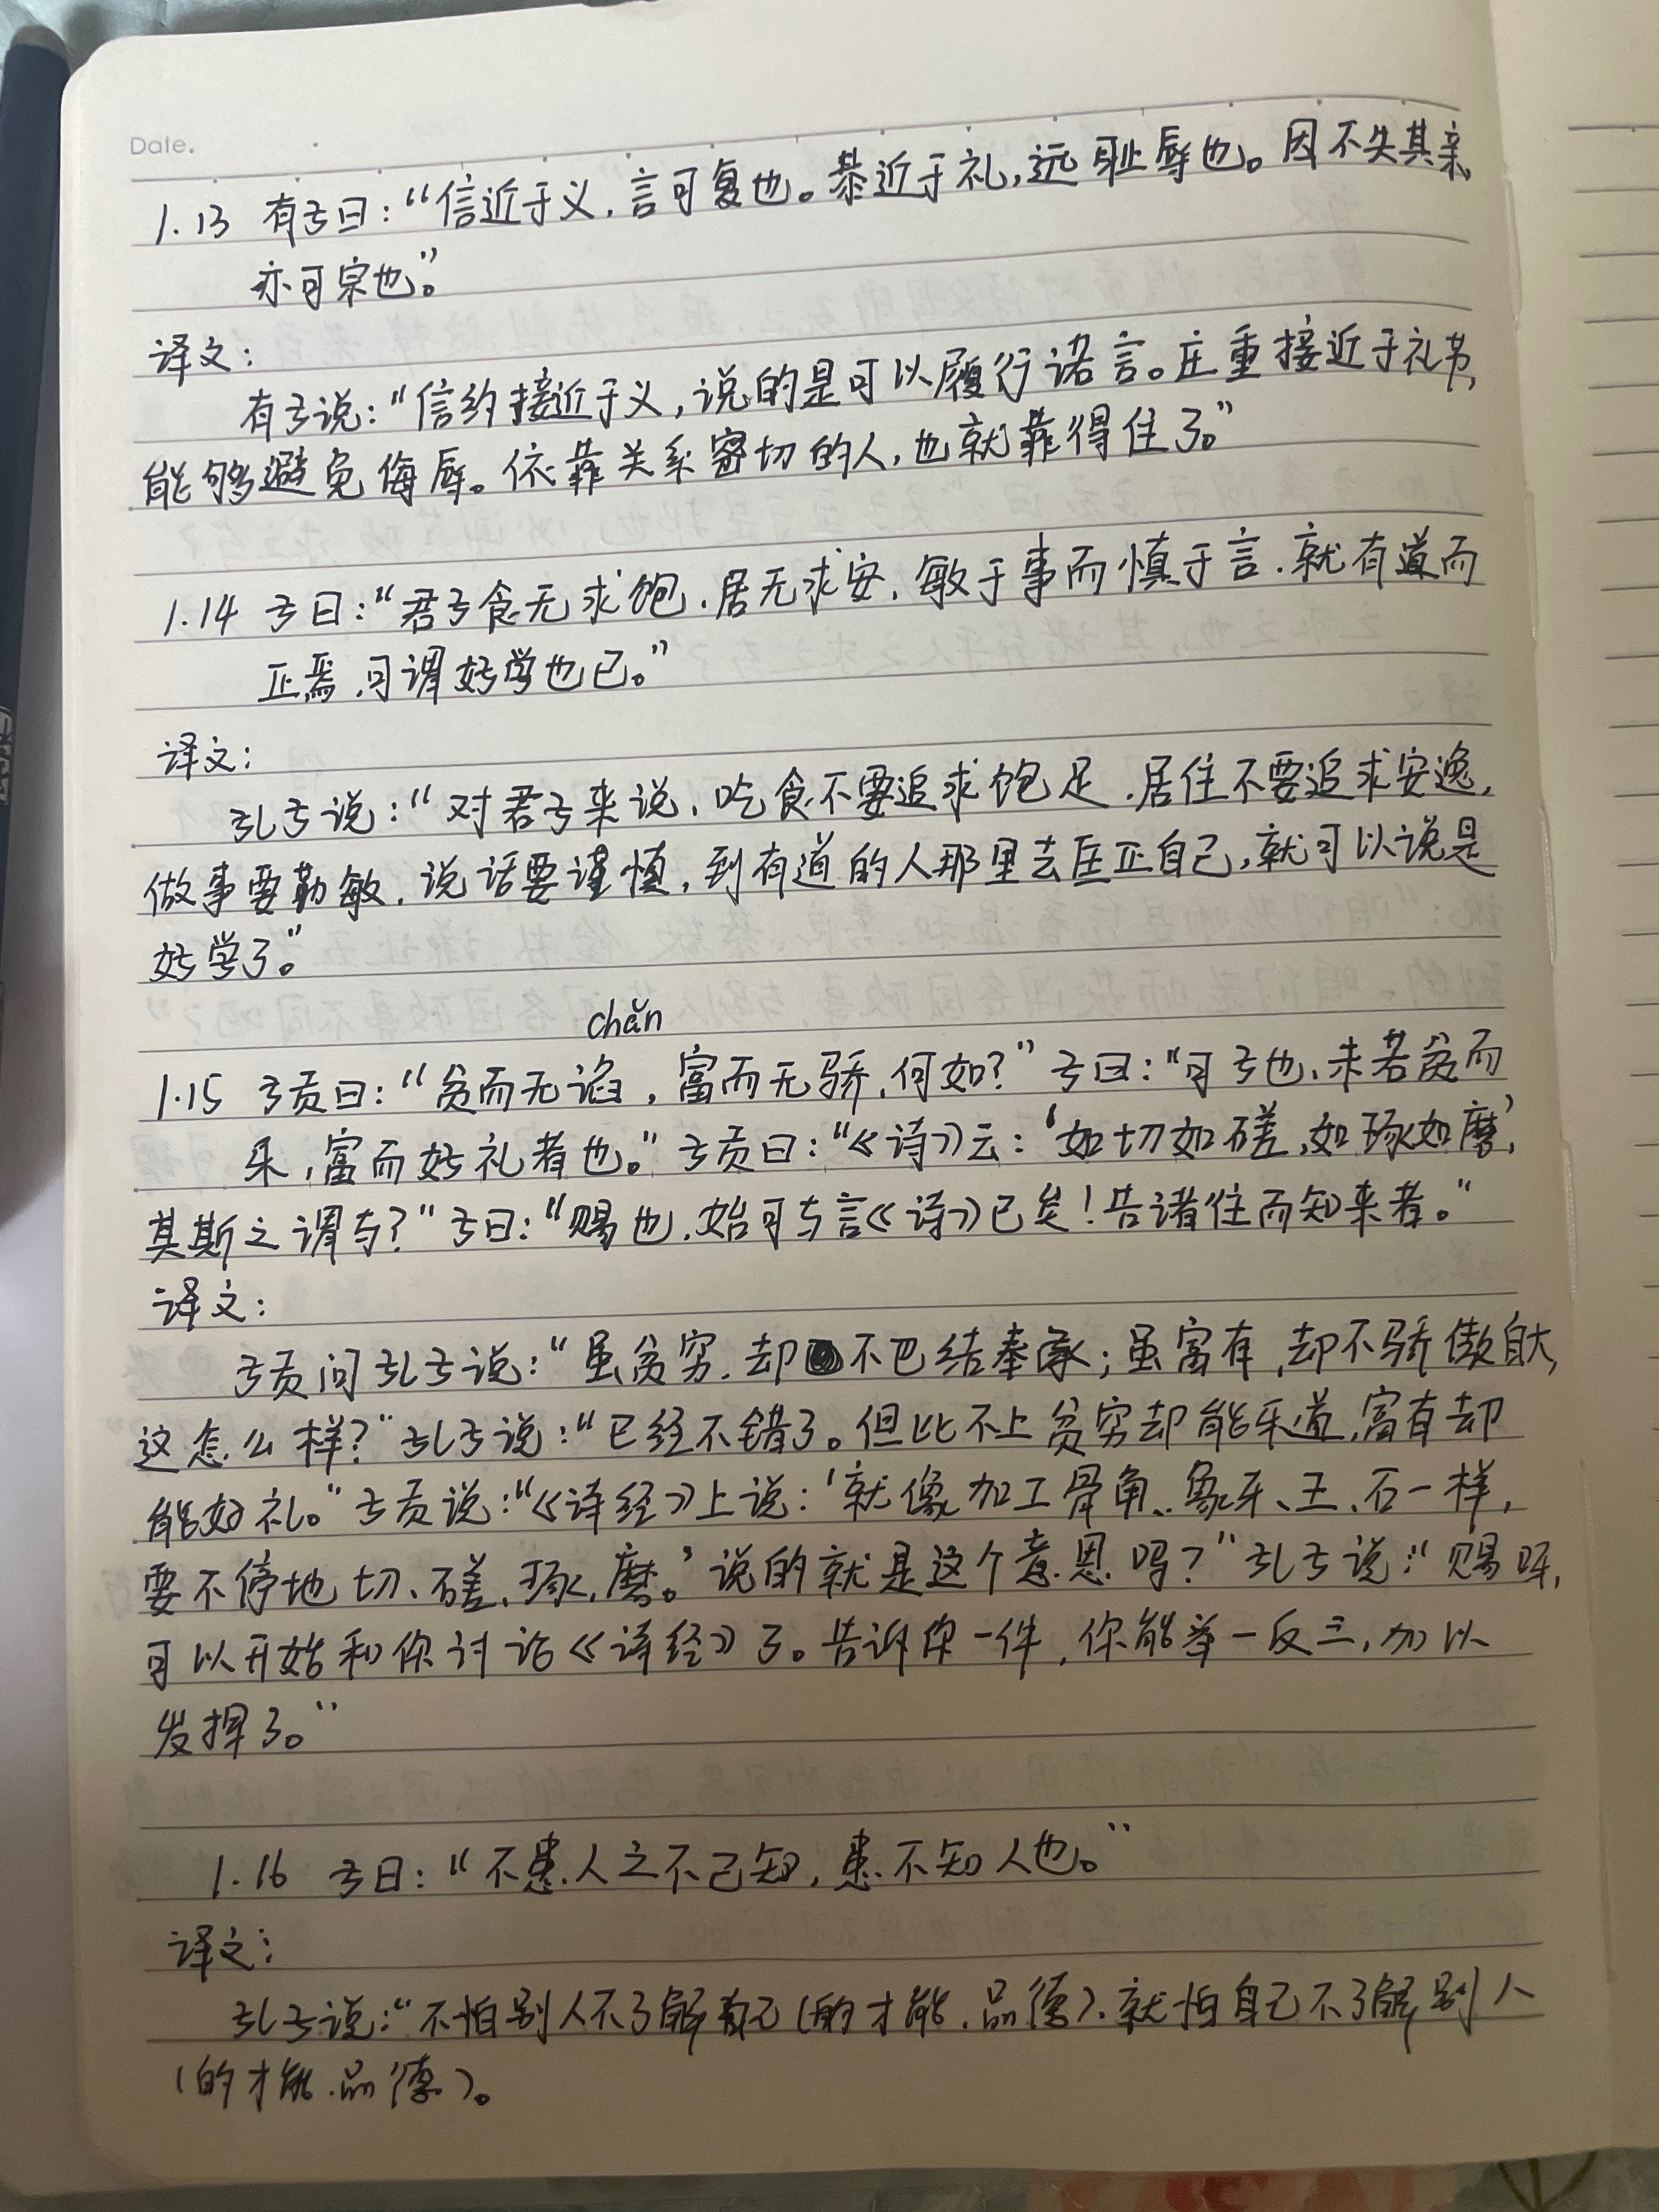 Date.
1.13 有子曰：“信近于义，言可复也。恭近于礼，远耻辱也。因不失其亲，
亦可宗也。”
译文：
有子说：“信约接近于义，说的是可以履行诺言。庄重接近于礼节，
能够避免侮辱。依靠关系密切的人，也就靠得住了。”
1.14 子曰：“君子食无求饱，居无求安，敏于事而慎于言，就有道而
正焉，可谓好学也已。”
译文：
孔子说：“对君子来说，吃食不要追求饱足，居住不要追求安逸，
做事要勤敏，说话要谨慎，到有道的人那里去匡正自己，就可以说是
好学了。”
chǎn
1.15 子贡曰：“贫而无谄，富而无骄，何如？”子曰：“可子也，未若贫而
乐，富而好礼者也。”子贡曰：“《诗》云：‘如切如磋，如琢如磨’，
其斯之谓与？”子曰：“赐也，始可与言《诗》已矣！告诸往而知来者。”
译文：
子贡问孔子说：“虽贫穷，却不巴结奉承；虽富有，却不骄傲自大，
这怎么样？”孔子说：“已经不错了。但比不上贫穷却能乐道，富有却
能好礼。”子贡说：“《诗经》上说：‘就像加工骨角、象牙、玉、石一样，
要不停地切、磋、琢、磨。’说的就是这个意思吗？”孔子说：“赐呀，
可以开始和你讨论《诗经》了。告诉你一件，你能举一反三，加以
发挥了。”
1.16 子曰：“不患人之不己知，患不知人也。”
译文：
孔子说：“不怕别人不了解自己（的才能、品德），就怕自己不了解别人
（的才能、品德）。